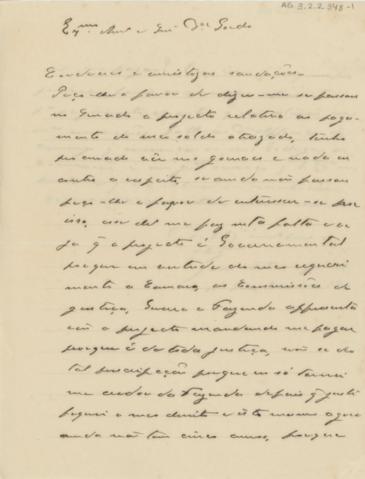 AG 3.2.2.348-1
Exmo. Amo. e Snr. Dr. Gordo
Cordeaes e amistozas saudações.
Peço-lhe o favor de dizer-me se passou
no Senado o projecto relativo ao paga-
mento do meu soldo atrazado, tenho
procurado nos jornaes e nada en
contro a respeito, se ainda não passou
peço-lhe o favor de interessar-se por
isso, me faz muita falta e ve
ja q o projecto é Governamental
porque em de meu requeri
mento a Camara, as Commissões de
Justiça, Guerra e Fazenda apresenta
rão o projecto mandando me pagar
porque é de toda justiça, não se dá
tal prescripção porque eu só tornei
me credor da Fazenda depois q justi
fiquei o meu direito e isto mesmo agora
ainda não tem cinco annos, porque